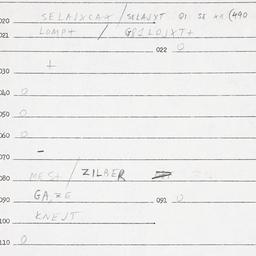 020 SELAJXCA+ / SELAJXT 01 SE xx (490
021 LOMP+ / GPILOJXT+
022 0
030 +
040 0
050 0
060 0
070 -
080 MES+ / ZILBER =
090 GA,ZE 091 0
100 KNEJT
110 0